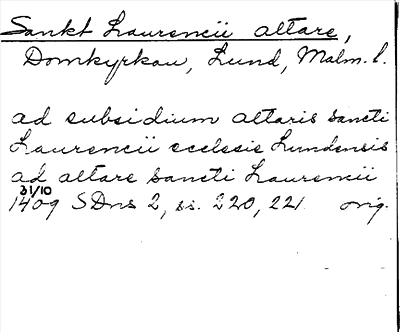 Sankt Laurencii altare,
Domkyrkan, Lund, Malm. l.
ad subsidium altaris sancti
Laurencii ecclesie Lundensis
ad altare sancti Laurencii
31/10
1409 SDns 2, ss. 220, 221. orig.